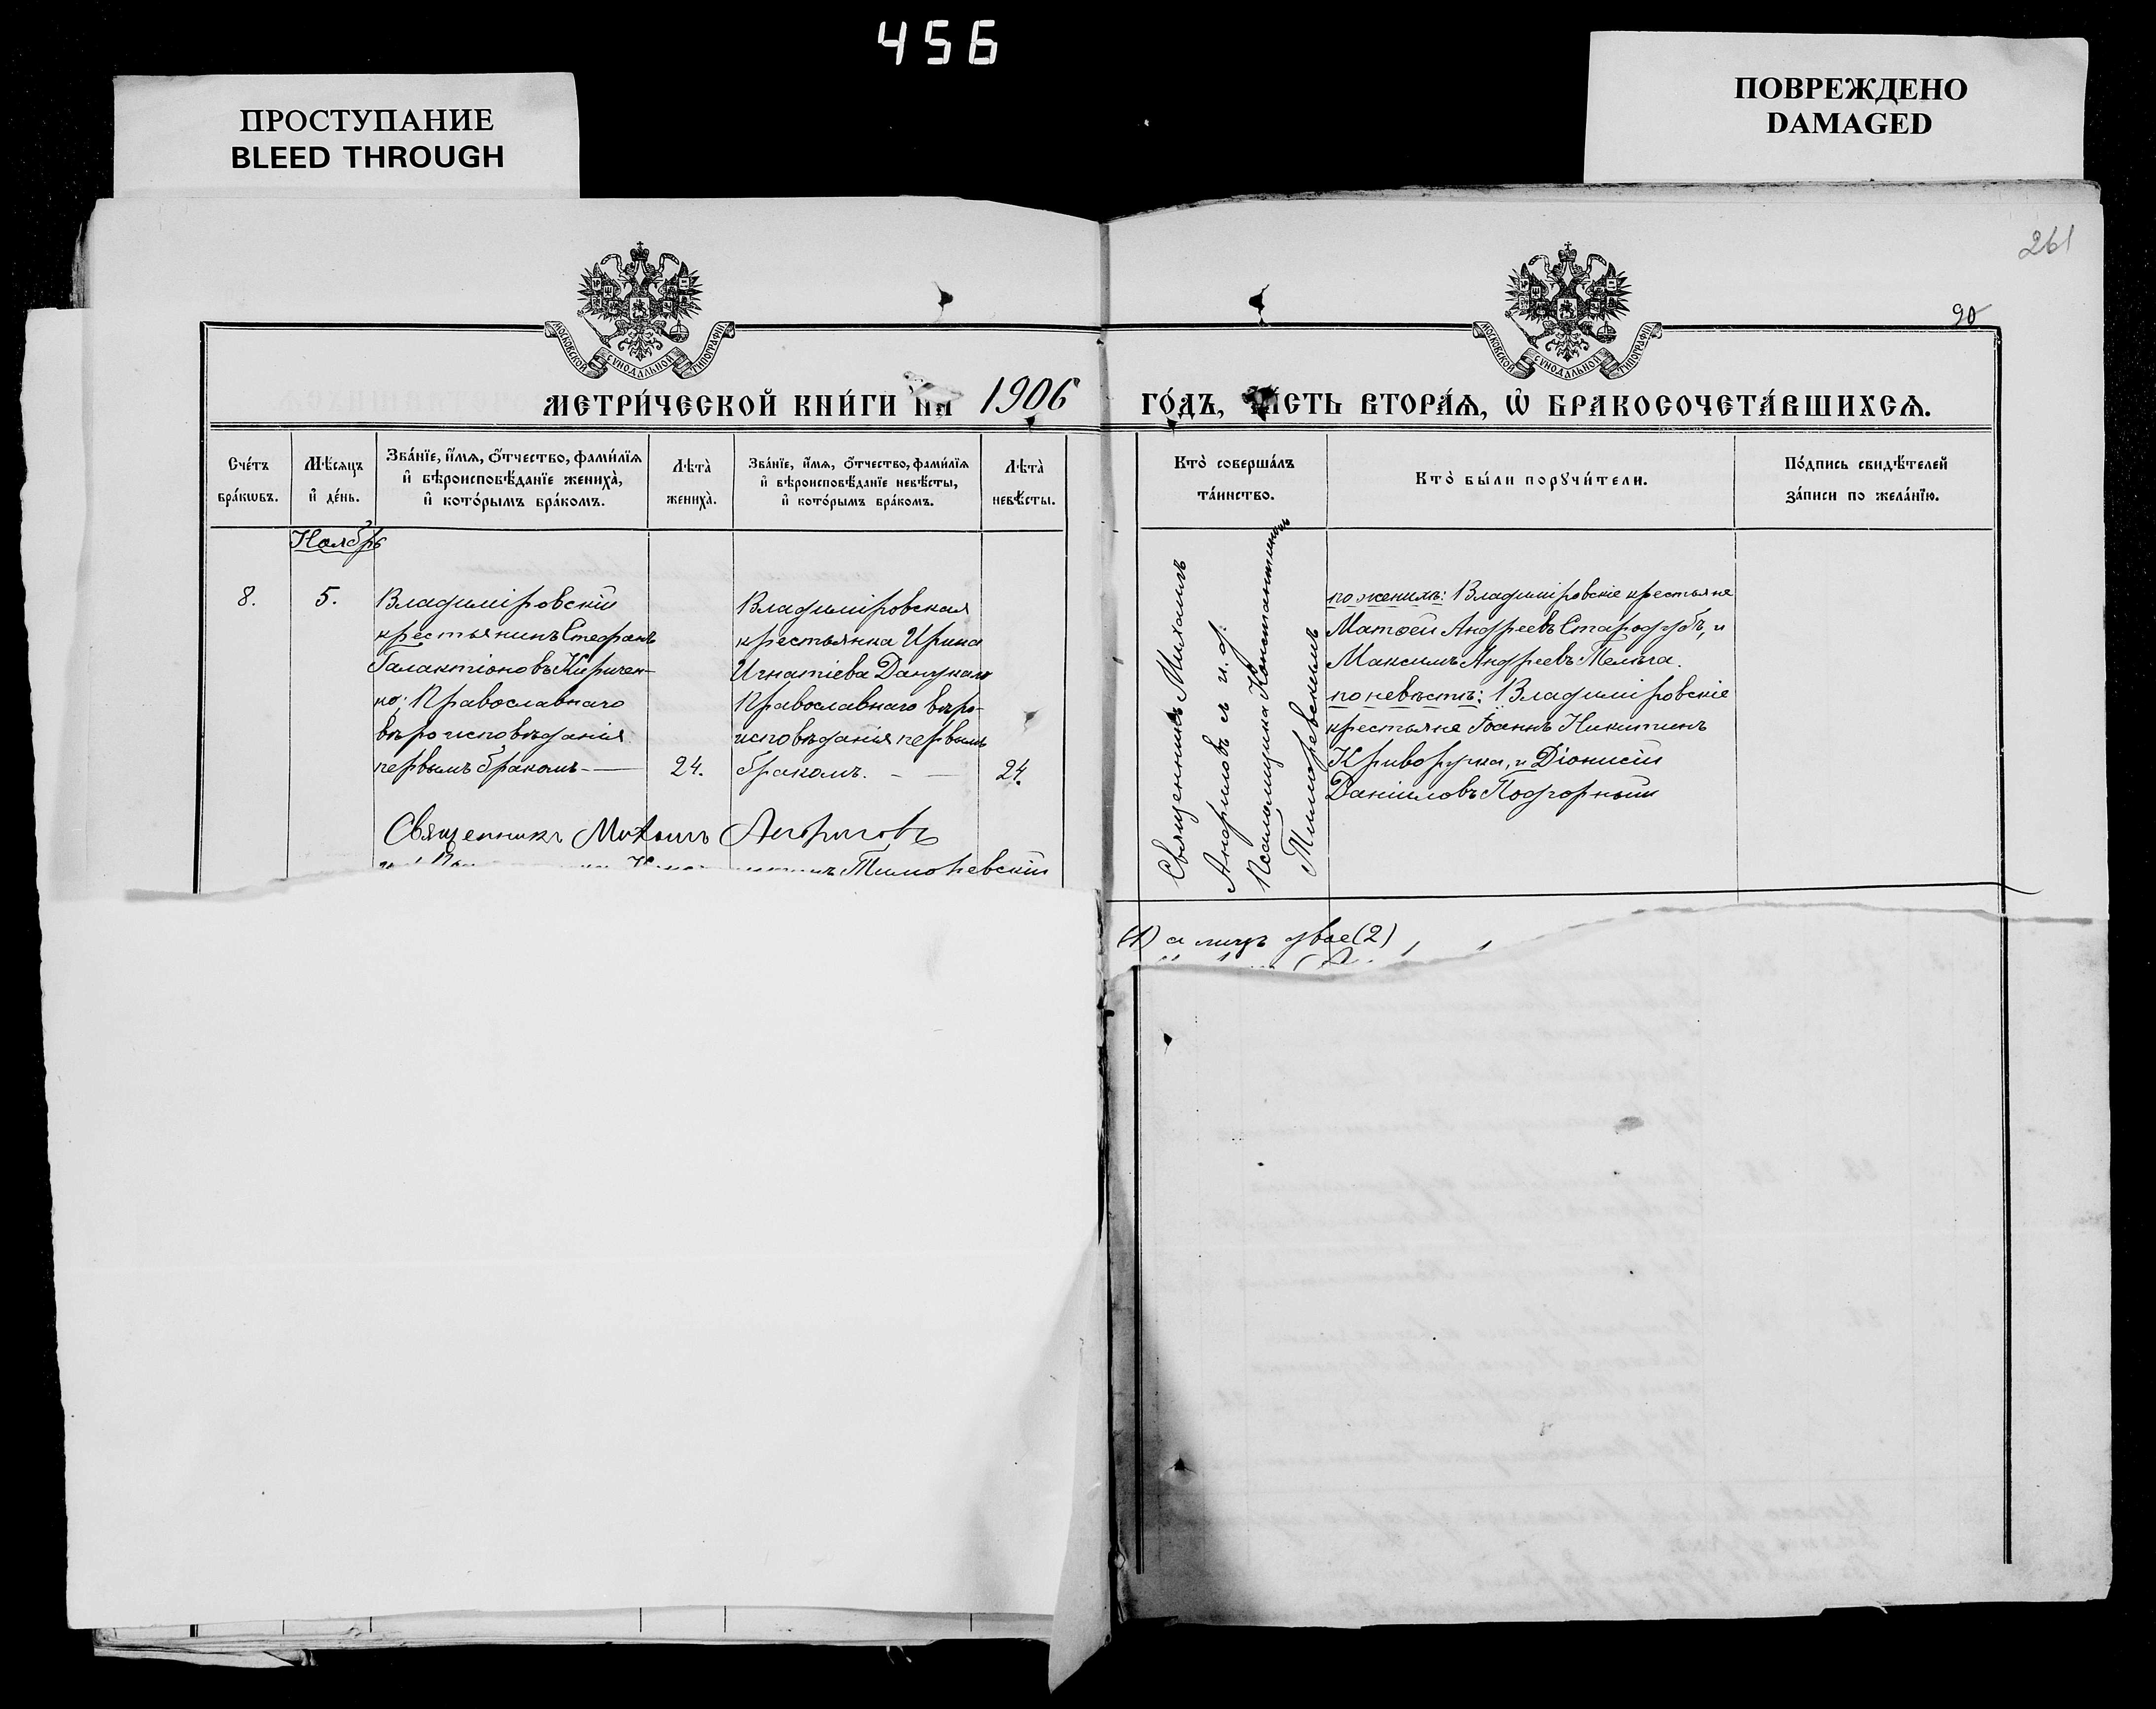 456
ПРОСТУПАНИЕ
BLEED THROUGH
ПОВРЕЖДЕНО
DAMAGED
261
90
МОСКОВСКОЙ СУНОДАЛЬНОЙ ТИПОГРАФІИ
МОСКОВСКОЙ СУНОДАЛЬНОЙ ТИПОГРАФІИ
МЕТРИ́ЧЕСКОЙ КНИ́ГИ НА 1906 ГО́ДЪ, ЧА́СТЬ ВТОРА́Ѧ, Ѡ БРАКОСОЧЕТА́ВШИХСѦ.
Сче́тъ
бра́кѡвъ.
Мѣ́сѧцъ
и҆ де́нь.
Зва́нїе, и҆́мѧ, ѻ҆́тчество, фами́лїѧ
и҆ вѣроисповѣ́данїе жениха̀,
и҆ кото́рымъ бра́комъ.
Лѣта̀
жениха̀.
Зва́нїе, и҆́мѧ, ѻ҆́тчество, фами́лїѧ
и҆ вѣроисповѣ́данїе невѣ́сты,
и҆ кото́рымъ бра́комъ.
Лѣта̀
невѣ́сты.
Кто̀ соверша́лъ
та́инство.
Кто̀ бы́ли порꙋчи́тели.
По́дпись свидѣ́телей
за́писи по жела́нїю.
Ноябрь
8.
5.
Владимiровскiй
крестьянинъ Стефанъ
Галактiоновъ Киричен-
ко; Православнаго
вѣроисповѣданiя
первымъ бракомъ
24.
Владимiровская
крестьянка Ирина
Игнатiева
Православнаго вѣро-
исповѣданiя первымъ
бракомъ.
24.
Священникъ Михаилъ
Анфиловъ съ и. д.
Псаломщика Константиномъ
Тимоѳевскимъ
по женихѣ: Владимiровскiе крестьяне
Матѳей Андреевъ Стародубъ, и
Максимъ Андреевъ
по невѣстѣ: Владимiровскiе
крестьяне Iоаннъ Никитинъ
Криворучка, и Дiонисiй
Данiиловъ Подгорный
Священникъ Михаилъ
Тимоѳевскiй
(1) а лицъ двое (2)